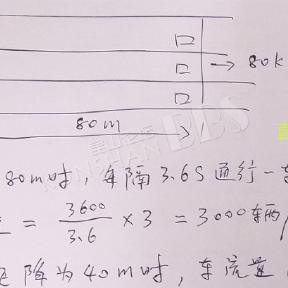 → 80k
80m
80m时，每隔3.6S通行一
= 3600/3.6 × 3 = 3000辆/
降为40m时，车流量